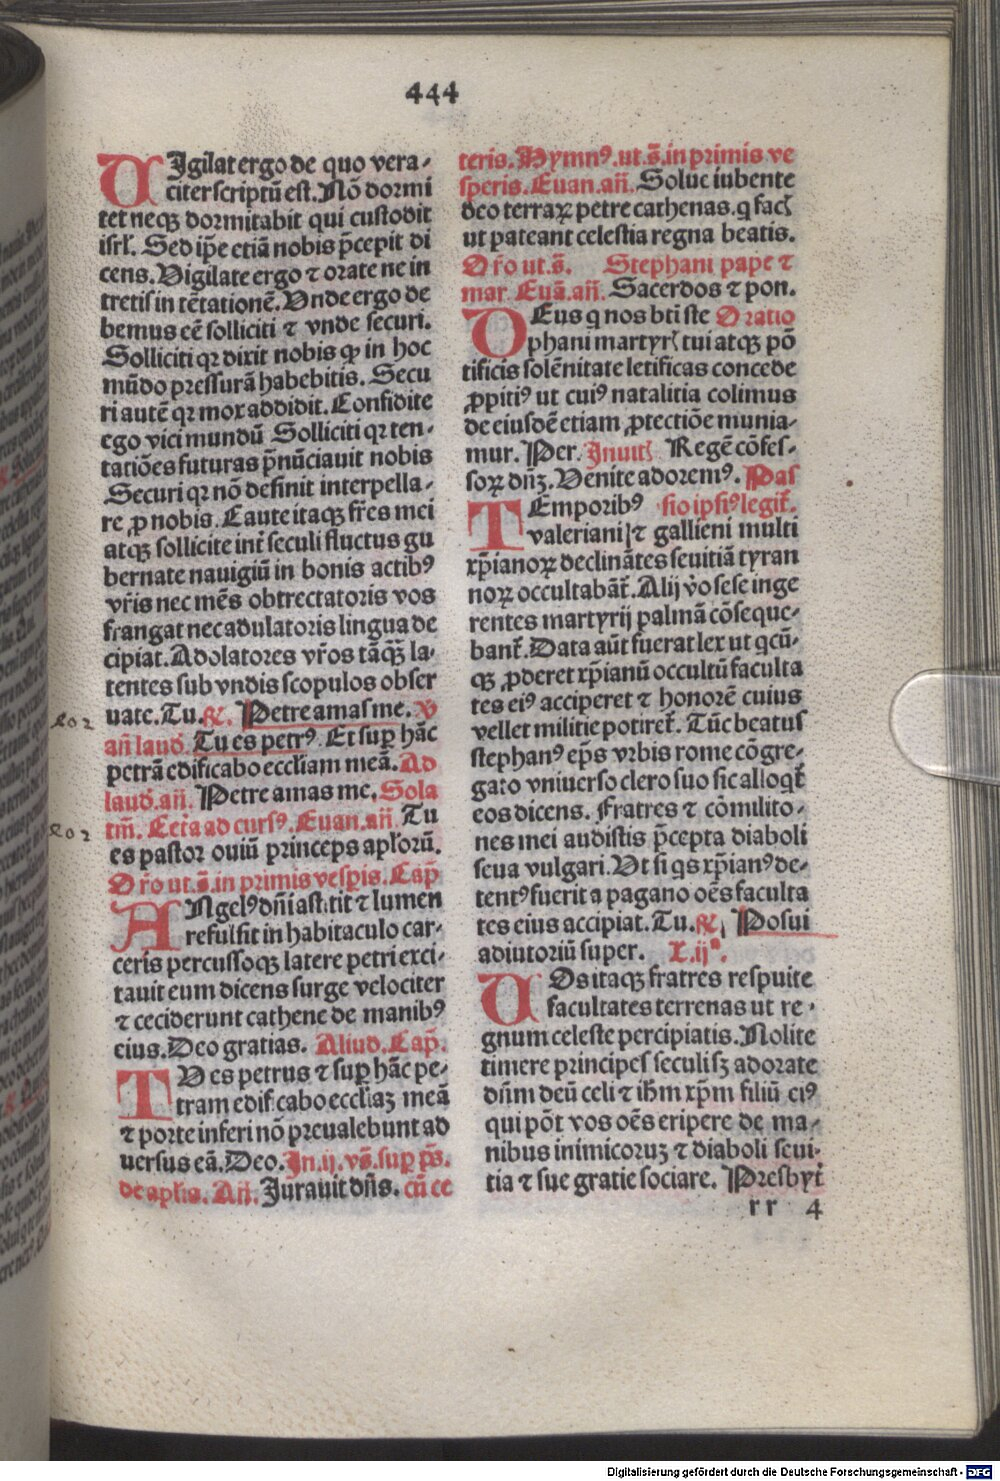 444
VJgilat ergo de quo vera-
citer scriptū est. Nō dormi
tet neqꝫ dormitabit qui custodit
isrl̄. Sed ip̄e etiā nobis p̄cepit di
cens. Vigilate ergo ⁊ orate ne in
tretis in tētationē. Vnde ergo de
bemus eē solliciti ⁊ vnde securi.
Solliciti qꝛ dixit nobis ꝙ in hoc
mūdo pressurā habebitis. Secu
ri autē qꝛ mox addidit. Confidite
ego vici mundū Solliciti qꝛ ten-
tatiōes futuras p̄nūciauit nobis
Securi qꝛ nō definit interpella-
re ꝓ nobis. Caute itaqꝫ fr̄es mei
atqꝫ sollicite int̄ seculi fluctus gu
bernate nauigiū in bonis actibꝰ
vr̄is nec mēs obtrectatoris vos
frangat nec adulatoris lingua de
cipiat. Adolatores vr̄os tāqꝫ̄ la-
tentes sub vndis scopulos obser
uate. Tu. ℟. Petre amas me. V
an̄ laud̄. Tu es petrꝰ. Et suꝑ hāc
petrā edificabo eccl̄iam meā. Ad
laud̄. an̄. Petre amas me. Sola
tm̄. Cet̄a ad cursꝰ. Euan. an̄. Tu
es pastor ouiū princeps apl̄orū.
Or̄o ut. s̄. in primis vesꝑis. Cap̄
ANgelꝰ dn̄i astitit ⁊ lumen
refulsit in habitaculo car-
ceris percussoqꝫ latere petri exci-
tauit eum dicens surge velociter
⁊ ceciderunt cathene de manibꝰ
eius. Deo gratias. Aliud. Cap̄.
TV es petrus ⁊ suꝑ hāc pe-
tram edificabo eccl̄iaꝫ meā
⁊ porte inferi nō preualebunt ad
uersus eā. Deo. Jn. ij. vs̄. suꝑ ps̄.
de apl̄is. An̄. Jurauit dn̄s. cū ce
teris. Hymnꝰ. ut. s̄. in primis ve
speris. Euan. an̄. Solue iubente
deo terraꝝ petre cathenas. q facꝭ
ut pateant celestia regna beatis.
Or̄o ut. s̄. Stephani pape ⁊
mar. Euā. an̄. Sacerdos ⁊ pon.
DEus q nos bt̄i ste Oratio
phani martyrꝭ tui atqꝫ pō
tificis solēnitate letificas concede
ꝓpitiꝰ ut cuiꝰ natalitia colimus
de eiusdē etiam ꝓtectiōe munia-
mur. Per. Jnuitꝭ Regē cōfes-
soꝝ dn̄ꝫ. Venite adoremꝰ. Pas
TEmporibꝰ sio ipsiꝰ legit̄.
valeriani ⁊ gallieni multi
xp̄ianoꝝ declināntes seuitiā tyran
noꝝ occultabāt̄. Alij v̄o sese inge
rentes martyrij palmā cōseque-
bant̄. Data aūt fuerat lex ut qcū-
qꝫ ꝓderet xp̄ianū occultū faculta
tes eiꝰ acciperet ⁊ honorē cuius
vellet militie potiret̄. Tūc beatus
stephanꝰ ep̄s vrbis rome cōgre-
gato vniuerso clero suo sic alloqt̄
eos dicens. Fratres ⁊ cōmilito-
nes mei audistis p̄cepta diaboli
seua vulgari. Vt si qs xp̄ianꝰ de-
tentꝰ fuerit a pagano oēs faculta
tes eius accipiat. Tu. ℟. Posui
adiutoriū super. L. ijᵃ.
VOs itaqꝫ fratres respuite
facultates terrenas ut re-
gnum celeste percipiatis. Nolite
timere principes seculi sꝫ adorate
dn̄m deū celi ⁊ ih̄m xp̄m filiū eiꝰ
qui pōt vos oēs eripere de ma-
nibus inimicoruꝫ ⁊ diaboli seui-
tia ⁊ sue gratie sociare. Presbyt̄
rr 4
Digitalisierung gefördert durch die Deutsche Forschungsgemeinschaft - DFG